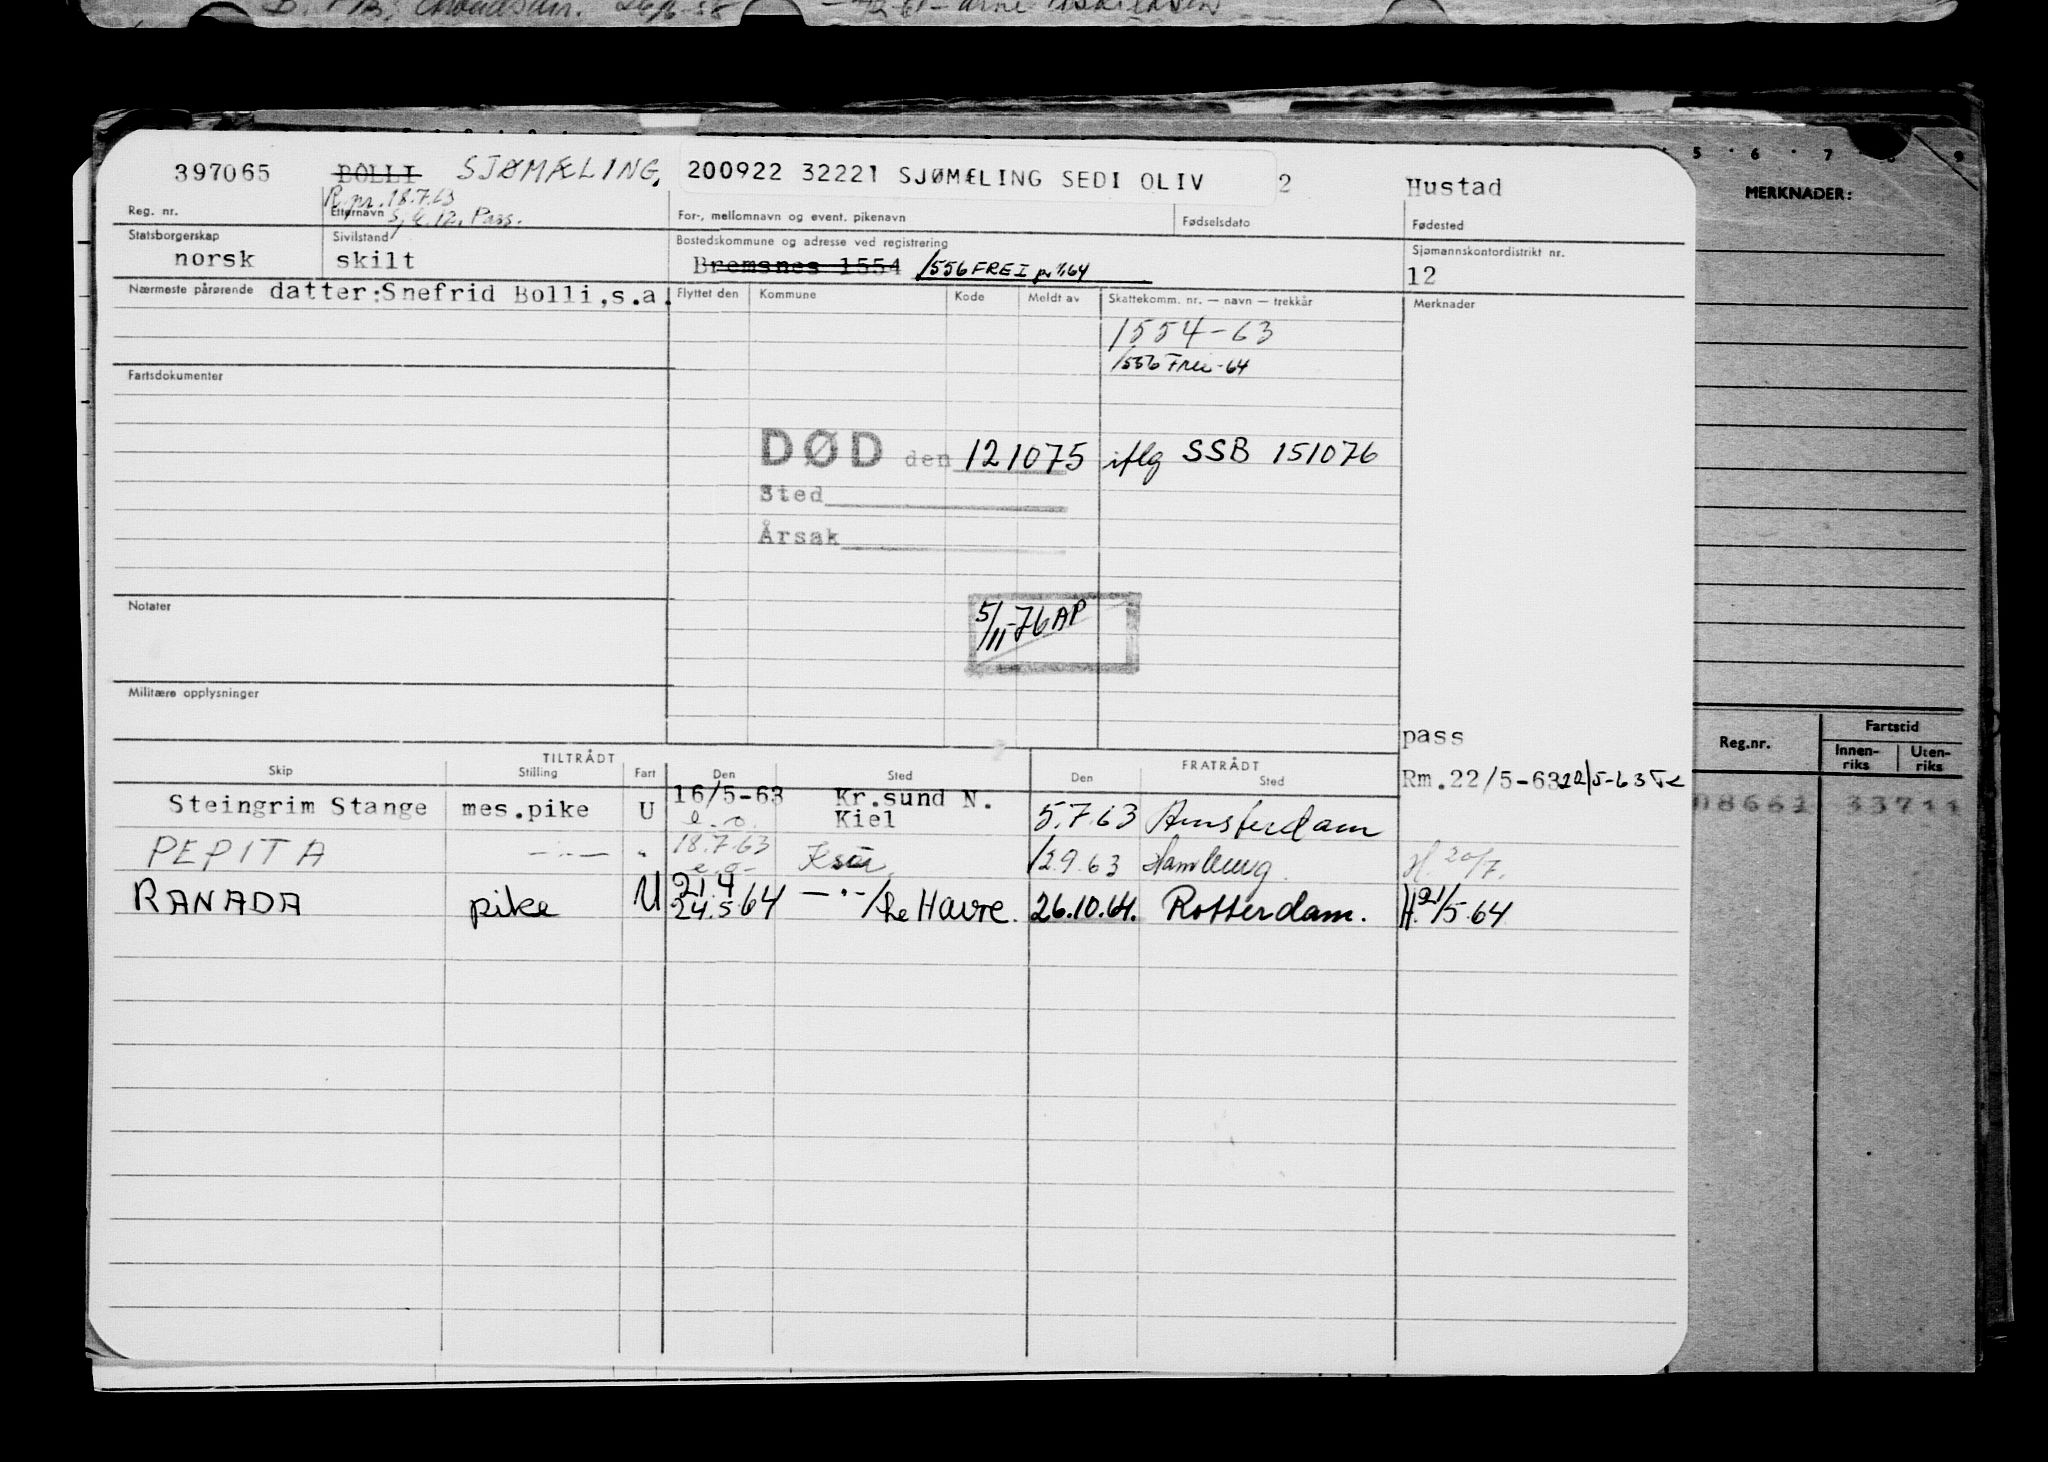 397065 BOLLI SJØMÆLING, 200922 32221 SJØMÆLING SEDI OLIV 2 Hustad
R. pr. 18.7.63
Reg. nr. Etternavn S.k. 12. Pass. For-, mellomnavn og event. pikenavn Fødselsdato Fødested
Statsborgerskap Sivilstand Bostedskommune og adresse ved registrering Sjømannskontordistrikt nr.
norsk skilt Bremsnes 1554 1556 FREI pr 1/1 64 12
Nærmeste pårørende datter:Snefrid Bolli,s.a. Flyttet den Kommune Kode Meldt av Skattekomm. nr. — navn — trekkår Merknader
1554-63
1556 Frei-64
Fartsdokumenter
DØD den 121075 iflg SSB 151076
Sted
Årsak
Notater
5/11-76 AP
Militære opplysninger
pass
TILTRÅDT FRATRÅDT
Skip Stilling Fart Den Sted Den Sted
Rm.22/5-63 22/5-63
16/5-63 Kr.sund N.
Steingrim Stange mes.pike U e.o. Kiel 5.7.63 Amsterdam
PEPITA —"— " 18.7.63 Ksu 12.9.63 Hamburg. H. 20/7.
e.o.
RANADA pike U 21.4 24.5.64 —"—/Le Havre. 26.10.64. Rotterdam. H.21/5.64
MERKNADER:
5 6 7 8 9
Reg.nr. Fartstid
Innen-riks Uten-riks
33711